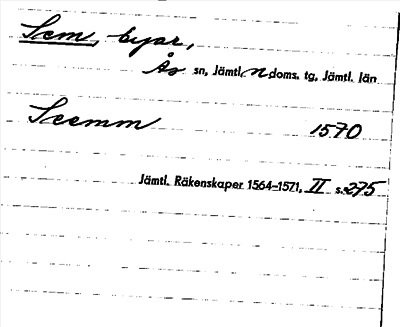 Sem, byar,
Ås sn, Jämtl. N doms. tg, Jämtl. län
Seemm 1570
Jämtl. Räkenskaper 1564-1571, II s. 275